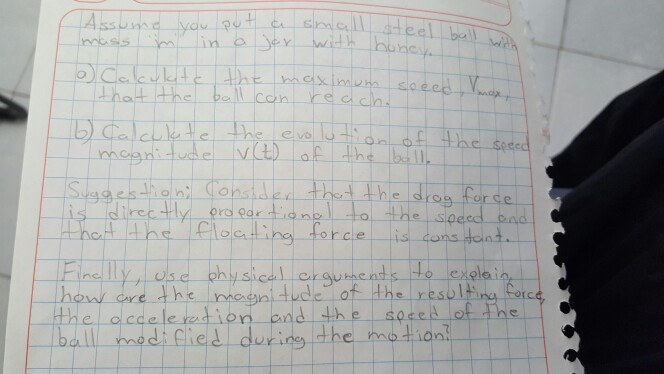 Assume you put a small steel ball with
mass m in a jar with honey.
a) Calculate the maximum speed, Vmax,
that the ball can reach.
b) Calculate the evolution of the speed
magnitude v(t) of the ball.
Suggestion: Consider that the drag force
is directly proportional to the speed and
that the floating force is constant.
Finally, use physical arguments to explain,
how are the magnitude of the resulting force,
the acceleration and the speed of the
ball modified during the motion?